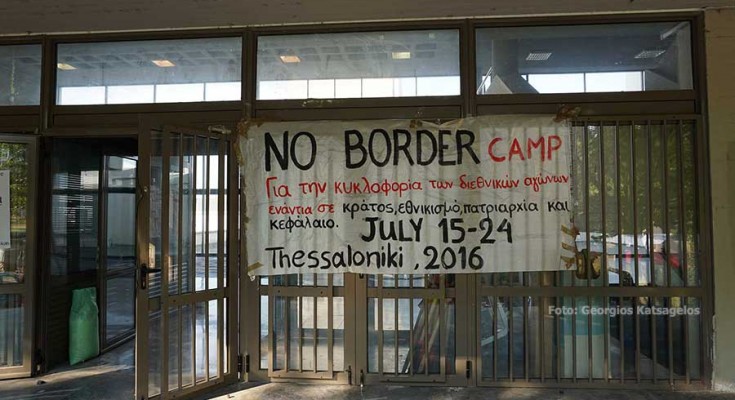 NO BORDER CAMP
Για την κυκλοφορία των διεθνικών αγώνων
ενάντια σε κράτος,εθνικισμό,πατριαρχία και
κεφάλαιο. JULY 15-24
Thessaloniki, 2016
Foto: Georgios Katsagelos